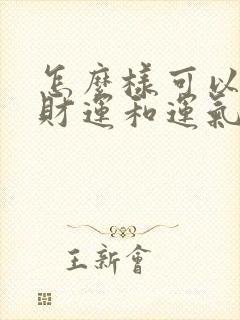 怎麼樣可以
財運和運氣
王新會